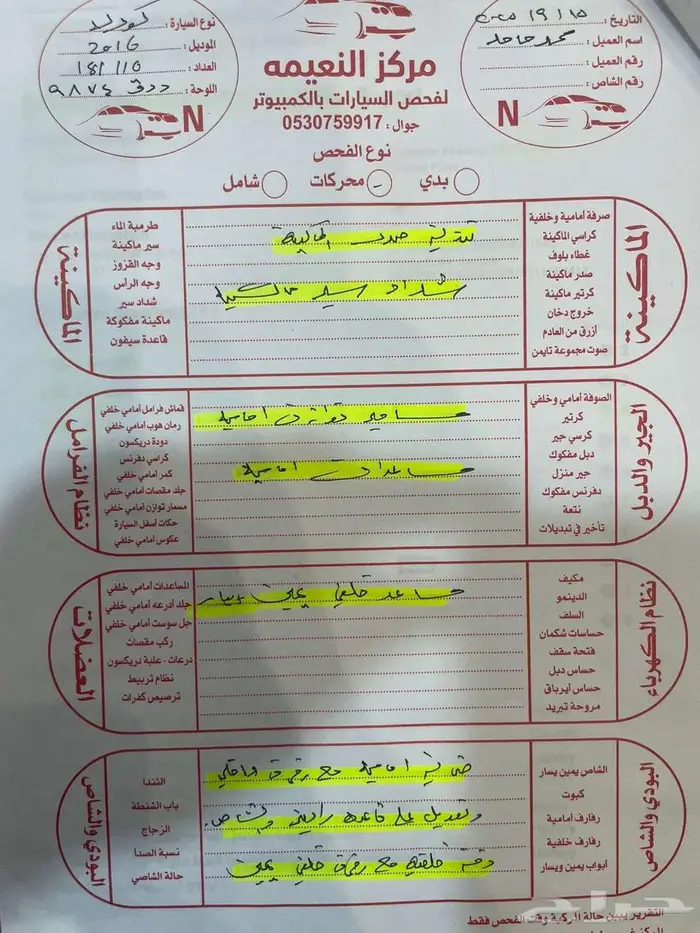 التاريخ :
اسم العميل : محمد حامد
رقم العميل :
رقم الشاص :
N
مركز النعيمه
لفحص السيارات بالكمبيوتر
جوال : 0530759917
نوع السيارة :
الموديل : 2016
العداد : 181110
اللوحة :
N
نوع الفحص
بدي
محركات
شامل
الماكينة
صرفة أمامية وخلفية
كراسي الماكينة
غطاء بلوف
صدر ماكينة
كرتير ماكينة
خروج دخان
أزرق من العادم
صوت مجموعة تايمن
شداد سير
طرمبة الماء
سير ماكينة
وجه القزوز
وجه الرأس
شداد سير
ماكينة مفكوكة
قاعدة سيفون
الماكينة
الجير والدبل
الصوفة أمامي وخلفي
كرتير
كرسي جير
دبل مفكوك
جير منزل
دفرنس مفكوك
نتعة
تأخير في تبديلات
مسامير توازن اماميه
مساعدات اماميه
قماش فرامل أمامي خلفي
رمان هوب أمامي خلفي
دودة دريكسون
كراسي دفرنس
كمر أمامي خلفي
جلد مقصات أمامي خلفي
مسمار توازن أمامي خلفي
حكات أسفل السيارة
عكوس أمامي خلفي
نظام الفرامل
نظام الكهرباء
مكيف
الدينمو
السلف
حساسات شكمان
فتحة سقف
حساس دبل
حساس أيرباق
مروحة تبريد
مساعد خلفي يمين يسار
المساعدات أمامي خلفي
جلد أذرعه أمامي خلفي
جل سوست أمامي خلفي
ركب مقصات
درعات - علبة دريكسون
نظام تربيط
ترصيص كفرات
العضلات
البودي والشاص
الشاص يمين يسار
كبوت
رفارف أمامية
رفارف خلفية
أبواب يمين ويسار
وتعديل على قاعده
خلفي يمين
الشنذا
باب الشنطة
الزجاج
نسبة الصدأ
حالة الشاصي
البودي والشاص
التقرير يبين حالة المركبة وقت الفحص فقط
حراج